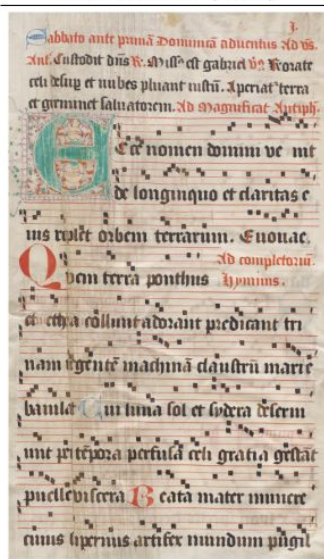 I.
Sabbato ante primā Dominicā adventus Ad vs.
Ant. Custodit dn̄s R. Missꝰ est gabriel Vꝰ Rorate
celi desup et nubes pluant iustū. Aperiatᵉ terra
et gieminet salvatorem. Ad Magnificat Antiph.
Ecce nomen domini ve nit
de longinquo et claritas e
ius replet orbem terrarum. Euouae.
Ad completoriū.
Quem terra ponthus Hymnus.
et ethra collunt adorant predicant tri
nam regentē machinā claustrū marie
baiulat Cui luna sol et sydera deserui
unt per tēpora perfusa celi gratia gestāt
puelle viscera Beata mater munere
cuius supernus artifex mundum pugil